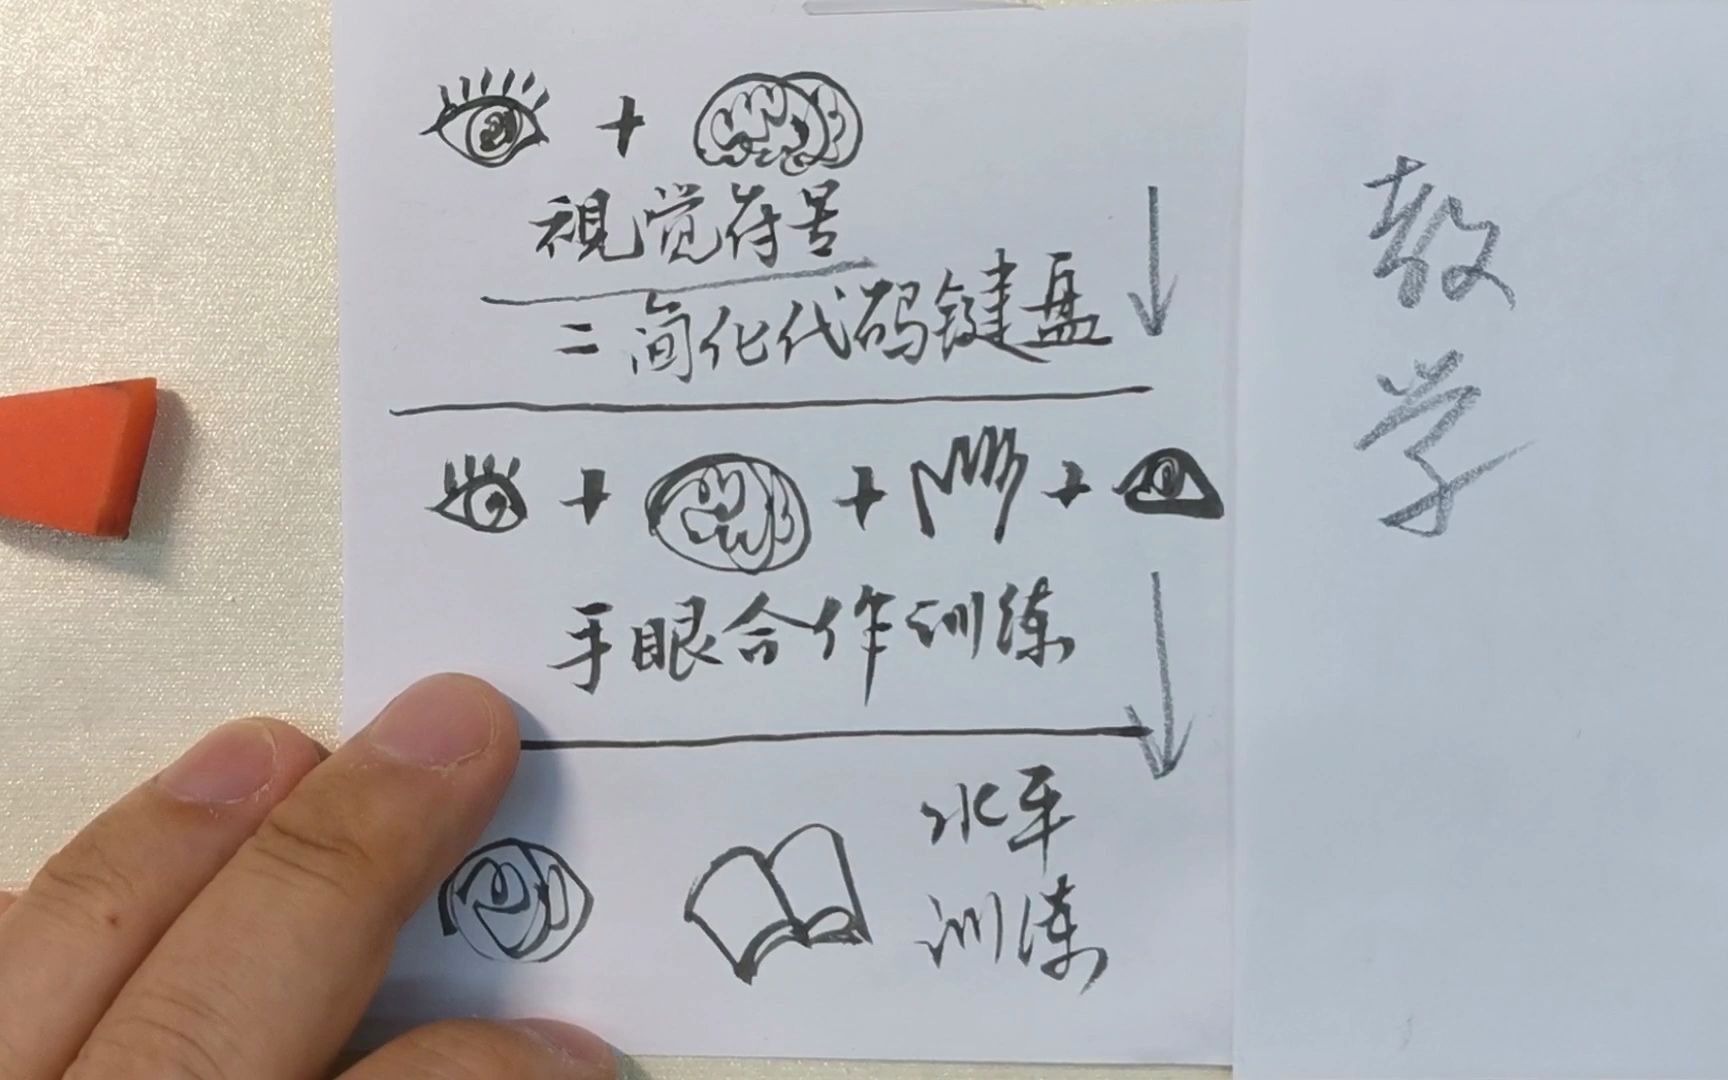 +
視觉符号
= 简化代码键盘
+ + +
手眼合作训练
水平
训练
教
学